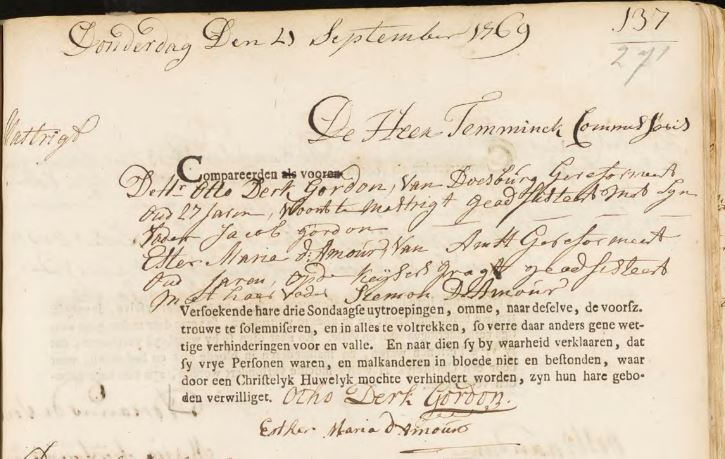 Donderdag Den 21 September 1769
137
271
Mastrigt
De Heer Temminck Commissaris
Compareerden als vooren
De Hr Otto Derk Gordon, Van Doesburg Gereformeet
Oud 27 Jaren, Woont te Mastrigt geadsisteert met Zyn
Vader Jacob Gordon
Ester Maria d'Amour, Van Amst Gereformeet
Oud Jaren, opde Keysers gragt geadsisteert
met haar Vader Siemon D'Amour
Versoekende hare drie Sondaagse uytroepingen, omme, naar deselve, de voorsz.
trouwe te solemniseren, en in alles te voltrekken, so verre daar anders gene wet-
tige verhinderingen voor en valle. En naar dien sy by waarheid verklaaren, dat
sy vrye Personen waren, en malkanderen in bloede niet en bestonden, waar
door een Christelyk Huwelyk mochte verhindert worden, zyn hun hare gebo-
den verwilliget.
Otho Derk Gordon.
Esther Maria d'Amour